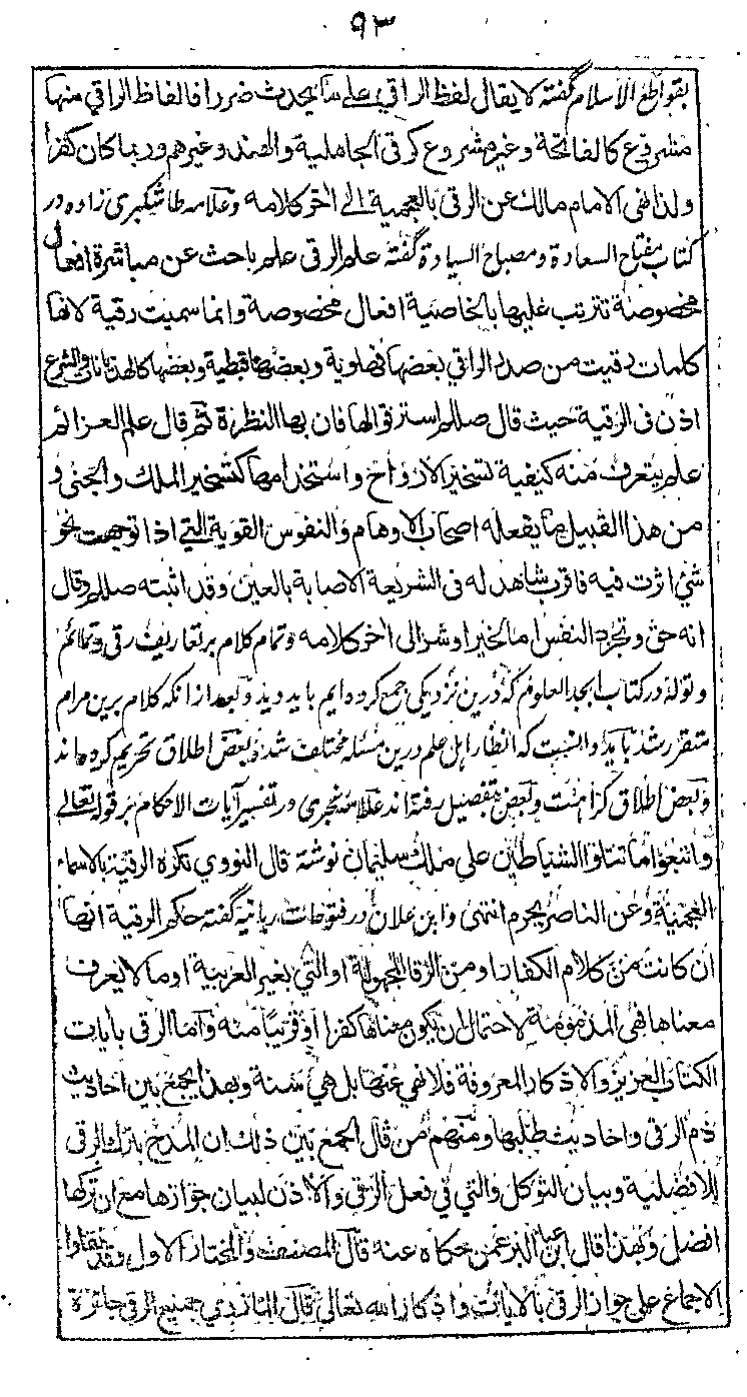 ٩٣
بقواطع الاسلام گفته لا يقال لفظ الراقي على ما يحدث ضررا فالفاظ الراقي منها
مشروع كالفاتحة وغير مشروع كرقى الجاهلية والهند وغيرهم وربما كان كفرا
ولذا نهى الامام مالك عن الرقى بالعجمية الى اخر كلامه وعلامه طاشكبرى زاده در
كتاب مفتاح السعادة ومصباح السيادة گفته علم الرقى علم باحث عن مباشرة افعال
مخصوصة تترتب عليها بالخاصية افعال مخصوصة وانما سميت رقية لانها
كلمات رقيت من صدر الراقي بعضها فهلوية وبعضها قبطية وبعضها كالهذيانات والشرع
اذن فى الرقية حيث قال صللم استرقوا لها فان بها النظرة ثم قال علم العزائم
علم يتعرف منه كيفية تسخير الارواح واستخدامها كتسخير الملك والجنى و
من هذا القبيل ما يفعله اصحاب الاوهام والنفوس القوية التي اذا توجهت نحو
شئ اثرت فيه فاقرب شاهد له فى الشريعة الاصابة بالعين وقد اثبته صللم وقال
انه حق وتجرد النفس اما لخير او شر الى اخر كلامه وتمام كلام بر تعاريف رقى وتمائم
وتوله در كتاب ابجد العلوم كه درين نزديكى جمع كرده ايم بايد ديد وبعد از انكه كلام برين مرام
متقرر شد بايد دانست كه انظار اہل علم درين مسئله مختلف شد وبعض اطلاق تحريم كرده اند
وبعض اطلاق كراهت وبعض بتفصيل رفته اند علامه شجرى در تفسير آيات الاحكام بر قوله تعالى
واتبعوا ما تتلوا الشياطين على ملك سليمان نوشته قال النووي تكره الرقية بالاسماء
العجمية وعن الناصر يحرم انتهى وابن علان در فتوحات ربانيه گفته حكم الرقية انها
ان كانت من كلام الكفار او من الرقا المجهولة او التي بغير العربية او ما لا يعرف
معناها فهى المذمومة لاحتمال ان يكون معناها كفرا او قريبا منه واما الرقى بايات
الكتاب العزيز والاذكار المعروفة فلا نهي عنها بل هي سنة وبهذا يجمع بين احاديث
ذم الرقى واحاديث طلبها ومنهم من قال الجمع بين ذلك ان المدح بترك الرقى
للافضلية وبيان التوكل والتي في فعل الرقى والاذن لبيان جوازها مع ان تركها
افضل وبهذا قال ابن عبد البر عمن حكاه عنه قال المصنف والمختار الاول وقد نقلوا
الاجماع على جواز الرقى بالايات واذكار الله تعالى قال المازري جميع الرقى جائزة